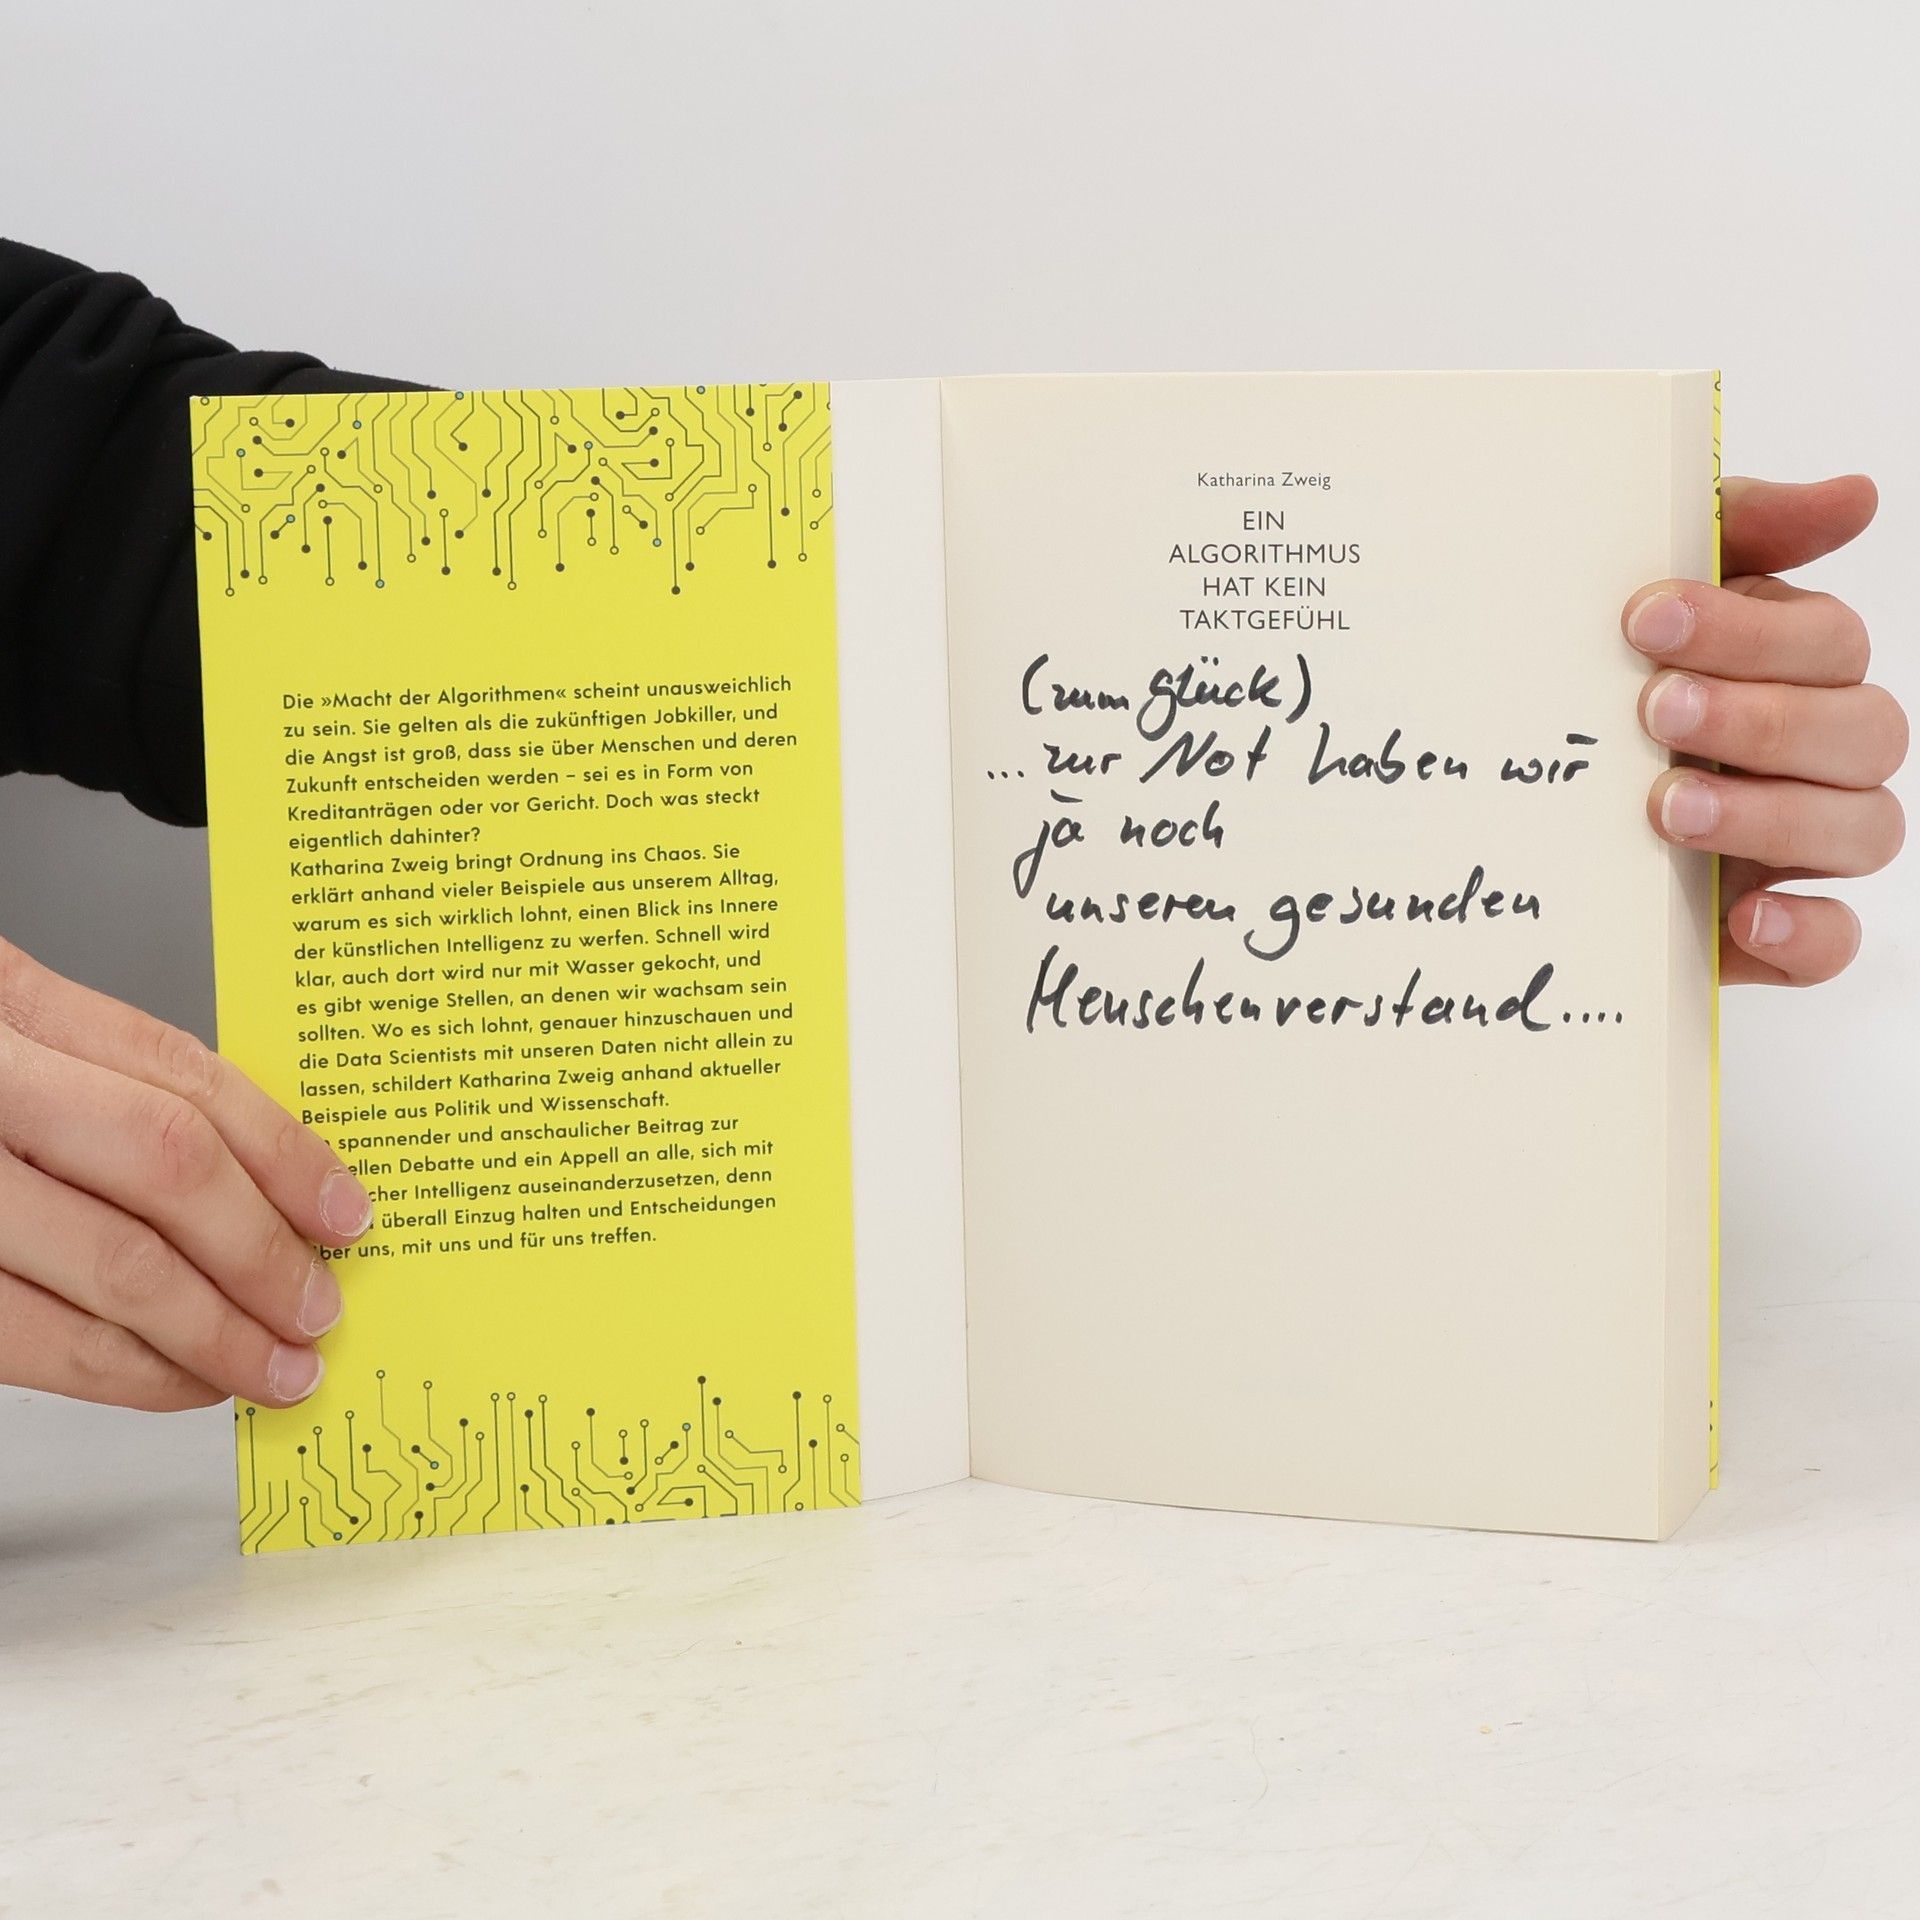 Die »Macht der Algorithmen« scheint unausweichlich
zu sein. Sie gelten als die zukünftigen Jobkiller, und
die Angst ist groß, dass sie über Menschen und deren
Zukunft entscheiden werden – sei es in Form von
Kreditanträgen oder vor Gericht. Doch was steckt
eigentlich dahinter?
Katharina Zweig bringt Ordnung ins Chaos. Sie
erklärt anhand vieler Beispiele aus unserem Alltag,
warum es sich wirklich lohnt, einen Blick ins Innere
der künstlichen Intelligenz zu werfen. Schnell wird
klar, auch dort wird nur mit Wasser gekocht, und
es gibt wenige Stellen, an denen wir wachsam sein
sollten. Wo es sich lohnt, genauer hinzuschauen und
die Data Scientists mit unseren Daten nicht allein zu
lassen, schildert Katharina Zweig anhand aktueller
Beispiele aus Politik und Wissenschaft.
spannender und anschaulicher Beitrag zur
ellen Debatte und ein Appell an alle, sich mit
cher Intelligenz auseinanderzusetzen, denn
überall Einzug halten und Entscheidungen
ber uns, mit uns und für uns treffen.
Katharina Zweig
EIN
ALGORITHMUS
HAT KEIN
TAKTGEFÜHL
(zum Glück)
... zur Not haben wir
ja noch
unseren gesunden
Menschenverstand....